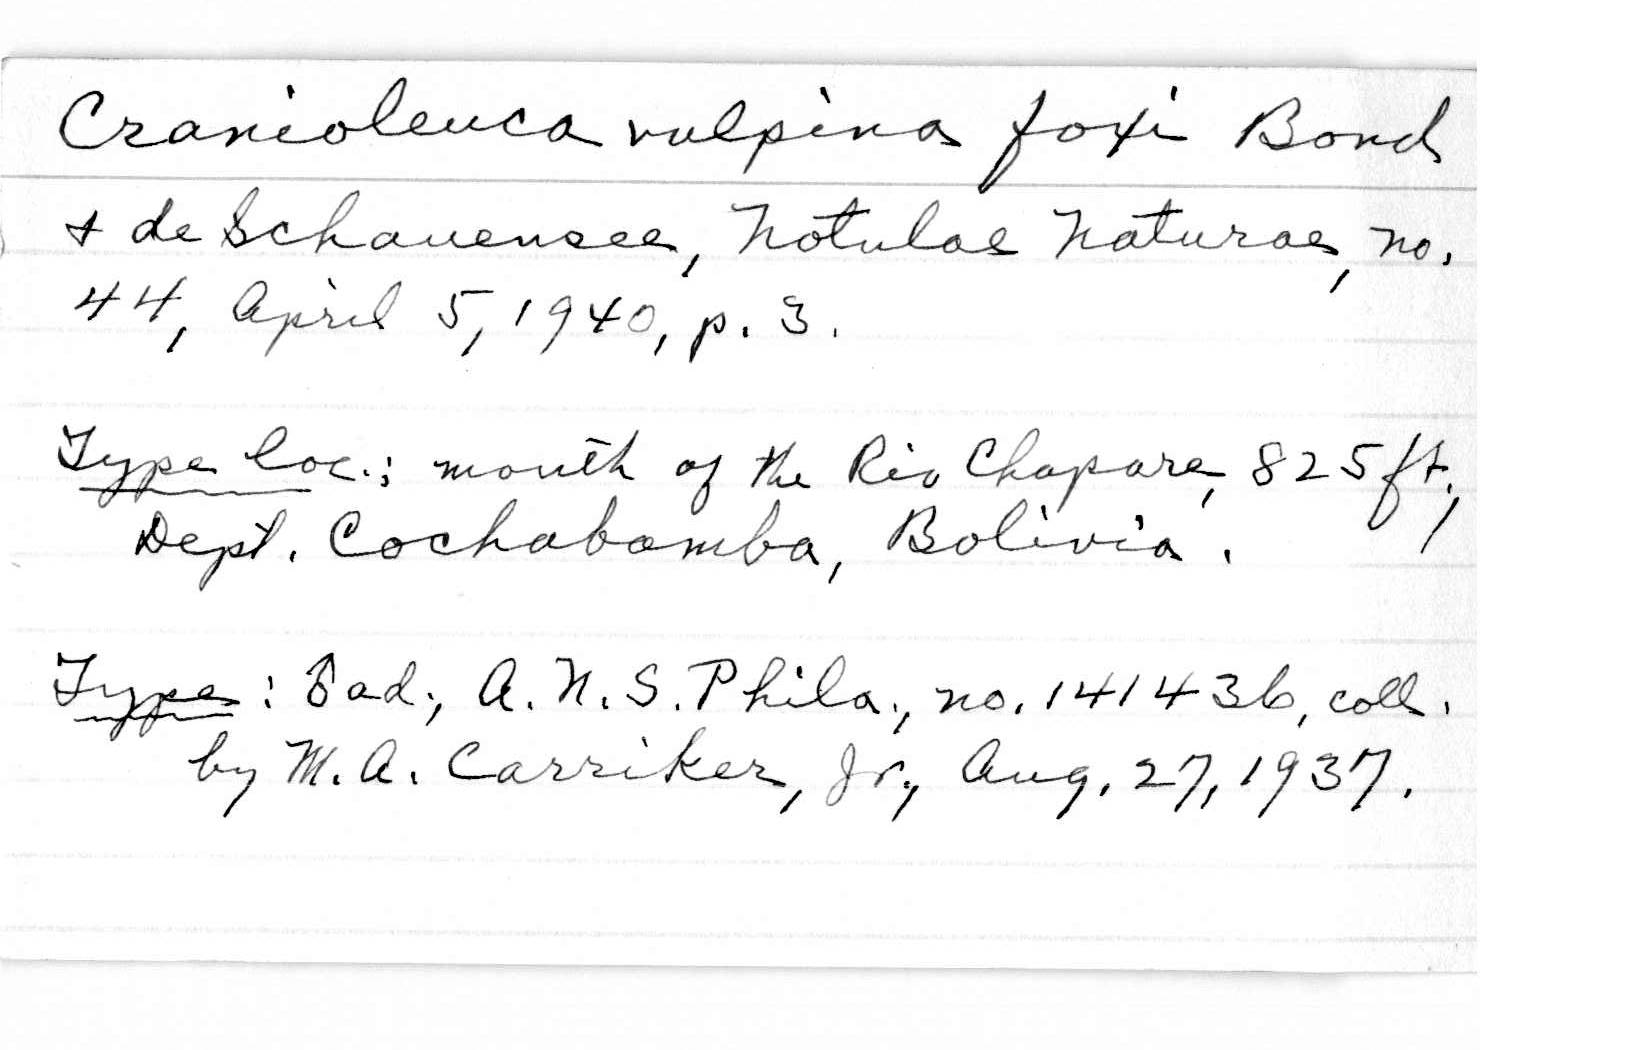 Cranioleuca vulpina foxi Bond
& de Schauensee, Notulae Naturae, no.
44, April 5, 1940, p. 3.
Type loc.: mouth of the Rio Chapare, 825 ft.,
Dept. Cochabamba, Bolivia.
Type: ♂ ad., A.N.S. Phila., no. 141436, coll.
by M.A. Carriker, Jr., Aug. 27, 1937.